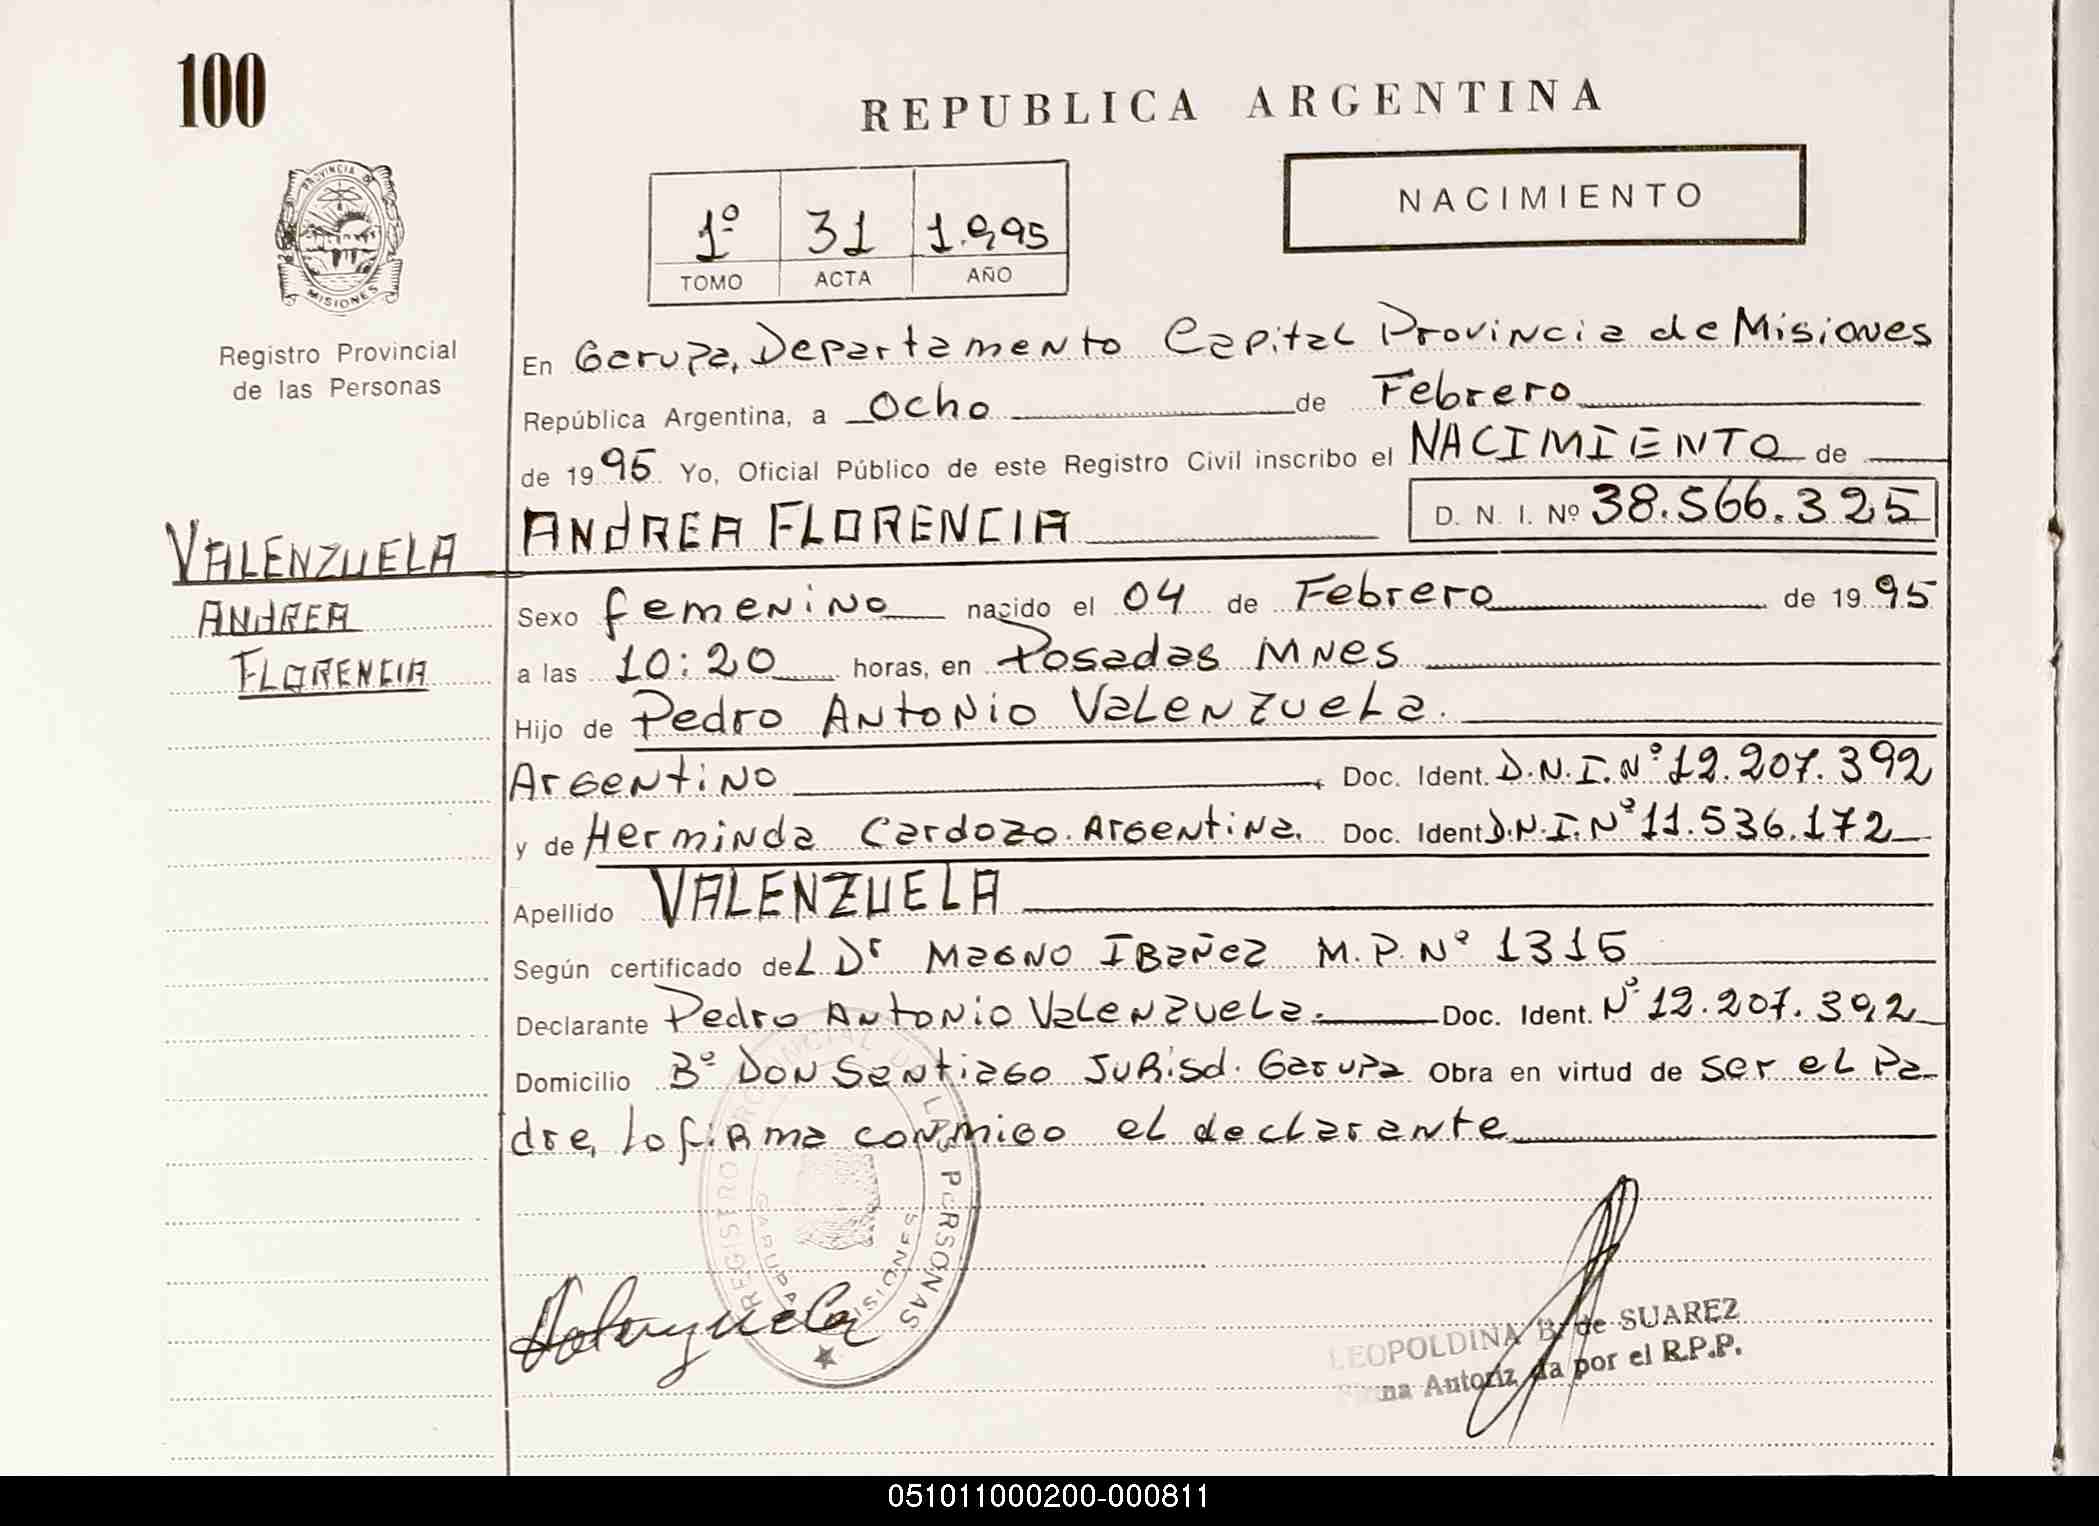 100
REPUBLICA ARGENTINA
NACIMIENTO
1º 31 1.995
TOMO ACTA AÑO
PROVINCIA DE
MISIONES
Registro Provincial
de las Personas
En Garupa, Departamento Capital Provincia de Misiones
República Argentina, a Ocho de Febrero
de 1995 Yo, Oficial Público de este Registro Civil inscribo el NACIMIENTO de
ANDREA FLORENCIA D. N. I. Nº 38.566.325
VALENZUELA
ANDREA
FLORENCIA
Sexo femenino nacido el 04 de Febrero de 1995
a las 10:20 horas, en Posadas Mnes
Hijo de Pedro Antonio Valenzuela.
Argentino, Doc. Ident. D.N.I. Nº 12.207.392
y de Herminda Cardozo. Argentina. Doc. Ident D.N.I. Nº 11.536.172
Apellido VALENZUELA
Según certificado del Dr Magno Ibañez M.P. Nº 1315
Declarante Pedro Antonio Valenzuela. Doc. Ident. Nº 12.207.392
Domicilio Bº Don Santiago Jurisd. Garupa Obra en virtud de ser el Pa-
dre, lo firma conmigo el declarante
REGISTRO PROVINCIAL DE LAS PERSONAS
GARUPA MISIONES
Valenzuela
LEOPOLDINA B. de SUAREZ
Firma Autorizada por el R.P.P.
051011000200-000811